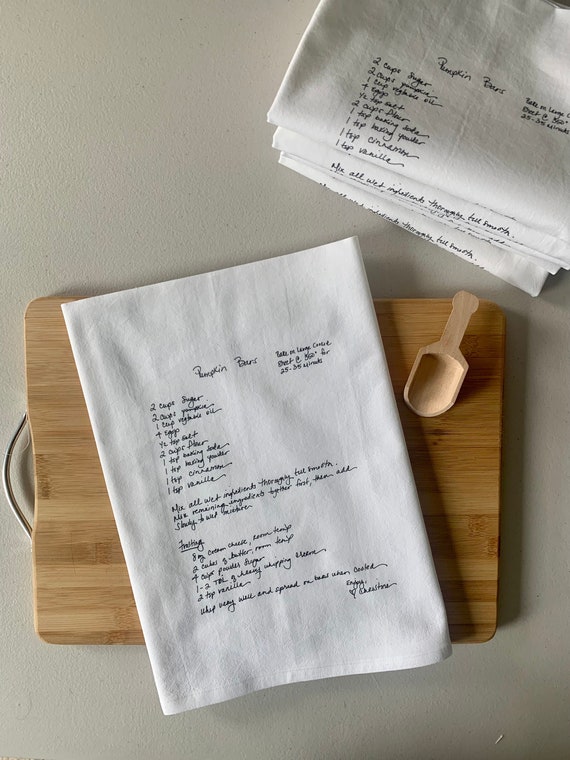 Pumpkin Bars
Bake on Large Cookie
Sheet @ 350° for
25-35 minutes
2 cups sugar
2 cups pumpkin
1 cup vegetable oil
4 eggs
1/2 tsp salt
2 cups flour
1 tsp baking soda
1 tsp baking powder
1 tsp cinnamon
1 tsp vanilla
Mix all wet ingredients thoroughly till smooth.
Mix remaining ingredients together first, then add
slowly to wet mixture.
Frosting
8oz cream cheese, room temp
2 cubes of butter, room temp
4 cups powder sugar
1-2 TBL of heavy whipping cream
2 tsp vanilla
Whip very well and spread on bars when cooled
Enjoy,
Pumpkin Bars
Bake on Large Cookie
Sheet @ 350° for
25-35 minutes
2 cups sugar
2 cups pumpkin
1 cup vegetable oil
4 eggs
1/2 tsp salt
2 cups flour
1 tsp baking soda
1 tsp baking powder
1 tsp cinnamon
1 tsp vanilla
Mix all wet ingredients thoroughly till smooth.
Mix all wet ingredients thoroughly till smooth.